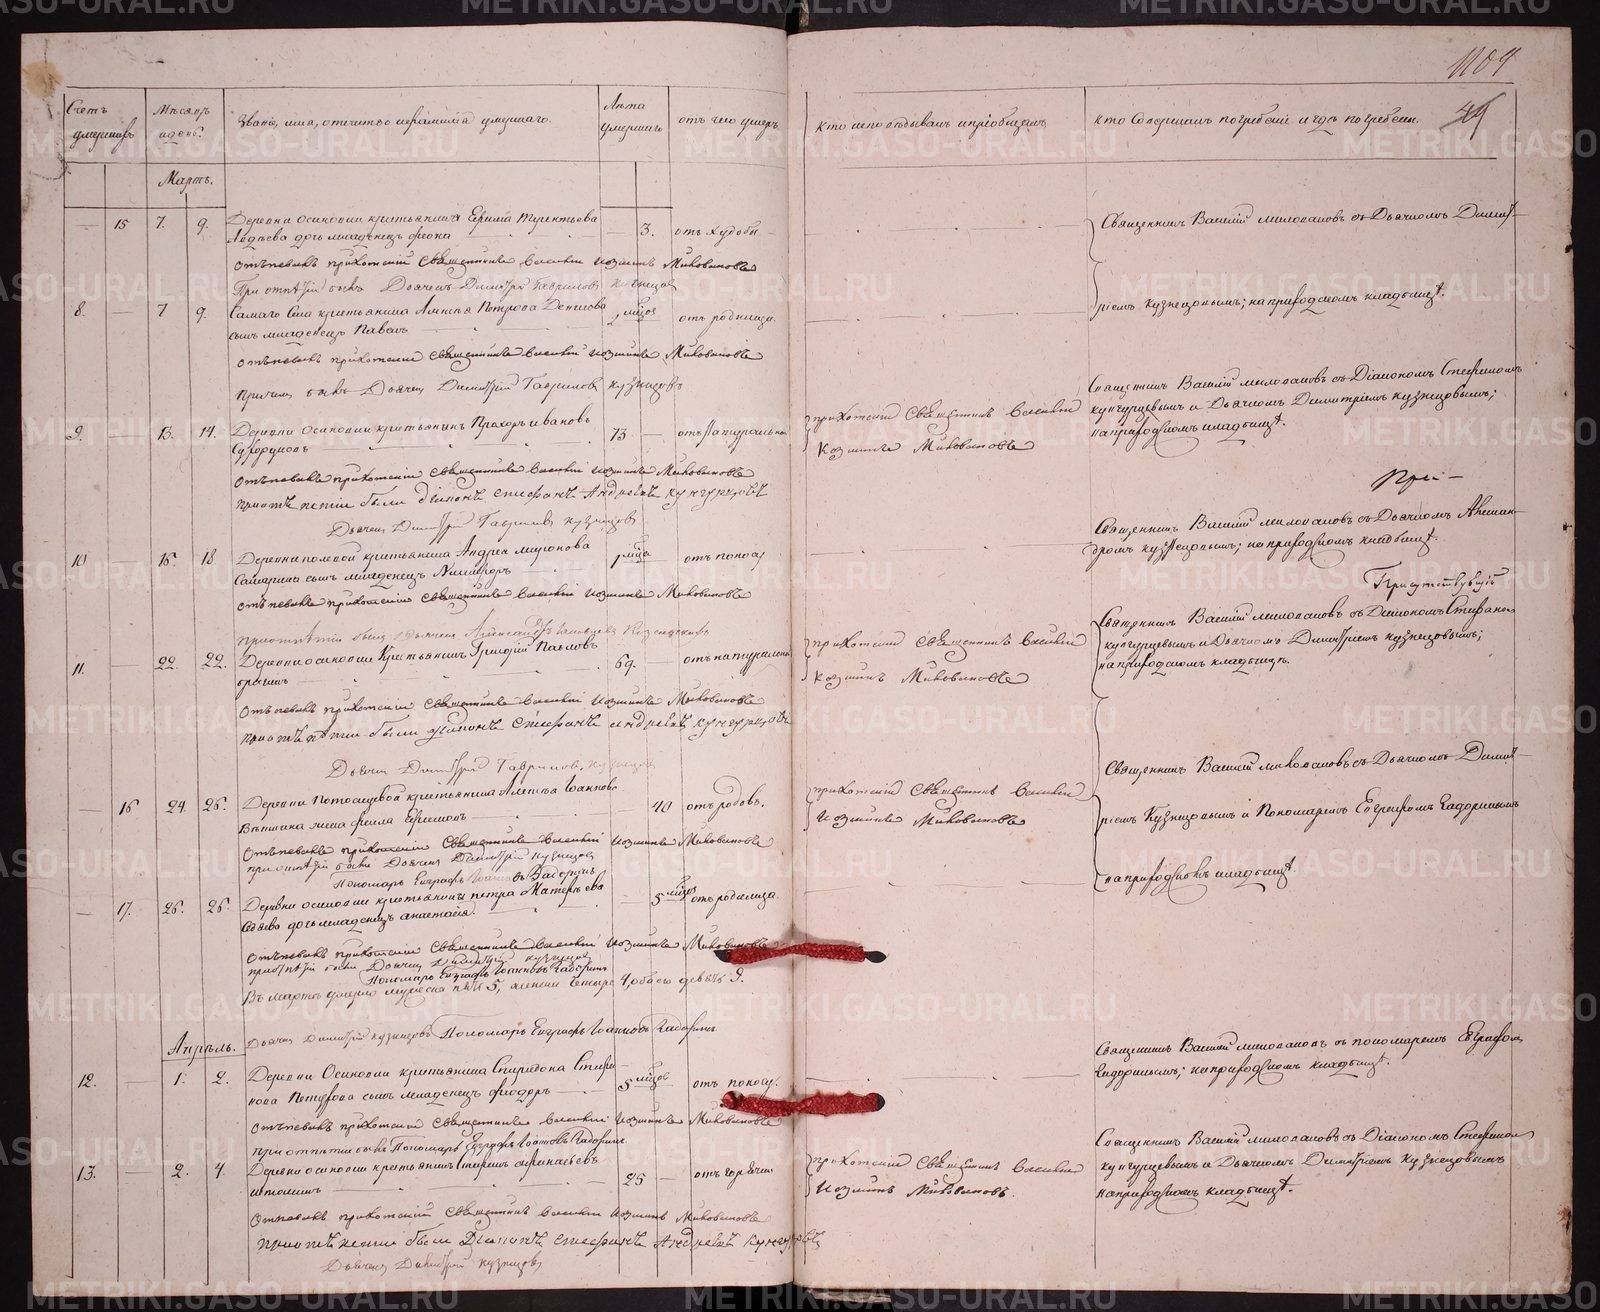 1109
Счетъ умершихъ
Мѣсяцъ и день.
Званіе, имя, отчество и фамилія умершаго.
Лѣта умершаго
отъ чего умеръ
кто исповѣдывалъ и пріобщалъ
кто совершалъ погребеніе и гдѣ погребены.
Мартъ.
— 15 7. 9.
Деревни Осиновки крестьянина
дочь младенецъ
— 3.
отъ худобы
Священникъ Василій Миловановъ съ Дьячкомъ Димит-
ріемъ Кузнецовымъ; на приходскомъ кладбищѣ.
отпевалъ приходскій Священникъ Василій Козминъ Миловановъ
При отпѣтіи былъ Дьячекъ Димитрій Гавриловъ Кузнецовъ
8. — 7 9.
Самаго Села крестьянина Петрова Денисова
сынъ младенецъ Павелъ
2 мѣсоз
отъ родимца.
отъпевалъ приходскій Священникъ Василій Козминъ Миловановъ
Причемъ былъ Дьячекъ Димитрій Гавриловъ Кузнецовъ
9. — 13. 14.
Деревни Осиновки крестьянинъ Прохоръ Ивановъ
73 —
отъ натуральной
приходскій Священникъ Василій
Козминъ Миловановъ
Священникъ Василій Миловановъ съ Діакономъ Стефаномъ
Кунгурцевымъ и Дьячкомъ Димитріемъ Кузнецовымъ;
на приходскомъ кладбищѣ.
отъпевалъ приходскій Священникъ Василій Козминъ Миловановъ
при отпетіи были Діаконъ Стефанъ Андреевъ Кунгурцовъ
Дьячекъ Димитрій Гавриловъ Кузнецовъ
При—
10 — 16. 18.
Деревни Полевой крестьянина Андрея Миронова
сынъ младенецъ Никифоръ
1 мѣца
отъ поносу
Священникъ Василій Миловановъ съ Дьячкомъ Алексан-
дромъ Кузнецовымъ; на приходскомъ кладбищѣ.
отъпевалъ приходскій Священникъ Василій Козминъ Миловановъ
Присутствующій
11. 22. 22.
Деревни Осиновки Крестьянинъ Григорій Павловъ
69. —
отъ натуральной
приходскій Священникъ Василій
Козминъ Миловановъ
Священникъ Василій Миловановъ съ Діакономъ Стефаномъ
Кунгурцевымъ и Дьячкомъ Димитріемъ Кузнецовымъ;
на приходскомъ кладбищѣ.
Отъпевалъ приходскій Священникъ Василій Козминъ Миловановъ
при отпѣтіи были Діаконъ Стефанъ Андреевъ Кунгурцовъ
Дьячекъ Димитрій Гавриловъ Кузнецовъ
— 16 24 26.
Деревни Потоскуевой крестьянина Алексѣя Іоаннова
жена Ѳекла Ефимова
— 40
отъ родовъ.
приходскій Священникъ Василій
Козминъ Миловановъ
Священникъ Василій Миловановъ съ Дьячкомъ Димит-
ріемъ Кузнецовымъ и Пономаремъ Евграфомъ Задоринымъ
на приходскомъ кладбищѣ.
Отъпевалъ приходскій Священникъ Василій Козминъ Миловановъ
при отпѣтіи были Дьячекъ Димитрій Кузнецовъ
Пономарь Евграфъ Іоанновъ Задоринъ
— 17. 25. 26.
Деревни Осиновки крестьянина Петра
дочь младенецъ Анастасія.
— 5 мѣсоз
отъ родимца.
отъпевалъ приходскій Священникъ Василій Козминъ Миловановъ
при отпѣтіи были Дьячекъ Димитрій Кузнецовъ
Пономарь Евграфъ Іоанновъ Задоринъ
Въ мартѣ умерло мужеска пять 5, женска четыре 4, обоего девять 9.
Дьячекъ Димитрій Кузнецовъ Пономарь Евграфъ Іоанновъ Задоринъ
Апрѣль.
12. — 1. 2.
Деревни Осиновки крестьянина Спиридона
сынъ младенецъ Ѳеодоръ
5 мѣсоз
отъ поносу.
Священникъ Василій Миловановъ съ пономаремъ Евграфомъ
Задоринымъ; на приходскомъ кладбищѣ.
отъпевалъ приходскій Священникъ Василій Козминъ Миловановъ
при отпѣтіи былъ Пономарь Евграфъ Іоанновъ Задоринъ
13. — 2. 4.
Деревни Осиновки крестьянинъ
25 —
отъ горячки
приходскій Священникъ Василій
Козминъ Миловановъ.
Священникъ Василій Миловановъ съ Діакономъ Стефаномъ
Кунгурцевымъ и Дьячкомъ Димитріемъ Кузнецовымъ
на приходскомъ кладбищѣ.
Отпевалъ приходскій Священникъ Василій Козминъ Миловановъ
при отпѣтіи были Діаконъ Стефанъ Андреевъ Кунгурцовъ
Дьячекъ Димитрій Кузнецовъ
METRIKI.GASO-URAL.RU